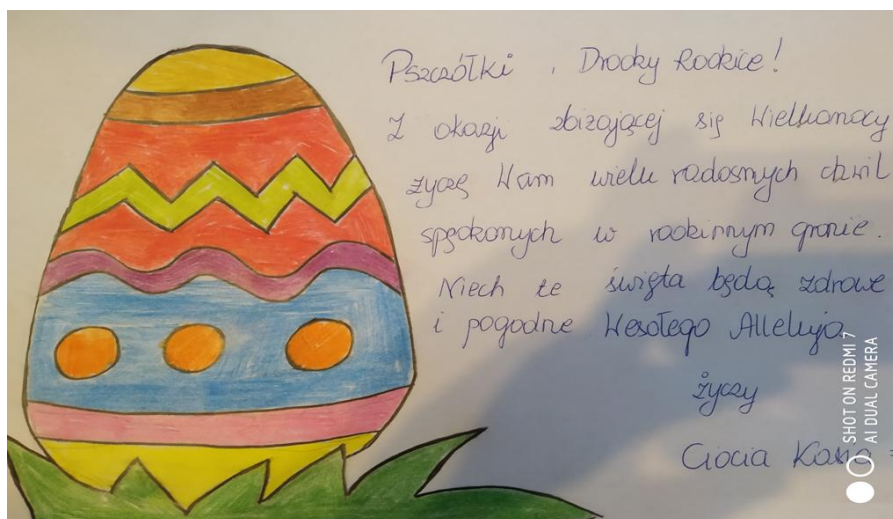 Pszczółki , Drodzy Rodzice!
Z okazji zbizającej się Wielkanocy
życzę Wam wielu radosnych chwil
spędzonych w rodzinnym gronie.
Niech te święta będą zdrowe
i pogodne Wesołego Alleluja
życzy
Ciocia Kasia
SHOT ON REDMI 7
AI DUAL CAMERA